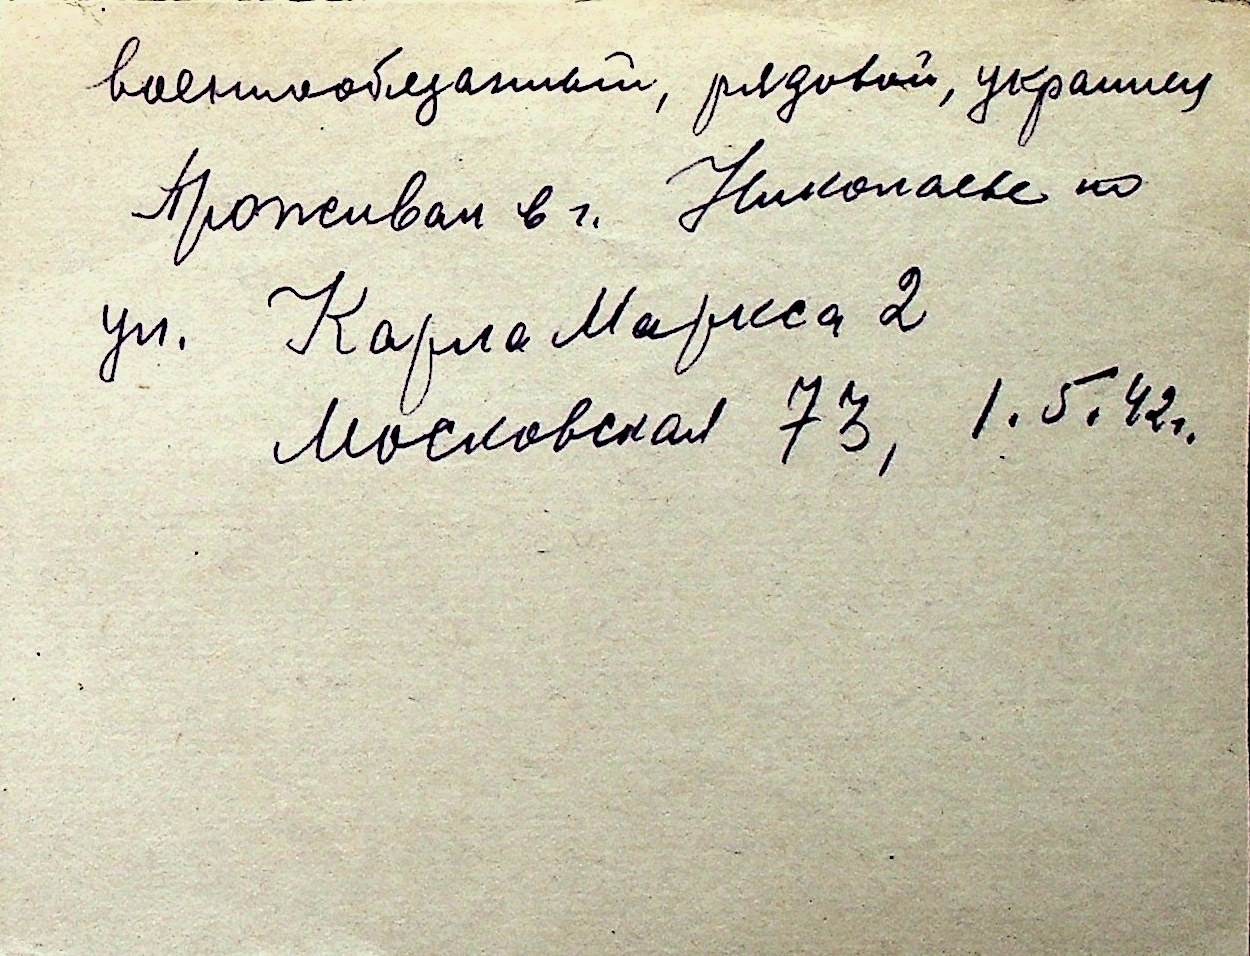 военнообязанный, рядовой, украинец
Проживал в г. Николаеве по
ул. Карла Маркса 2
Московская 73, 1.5.42г.